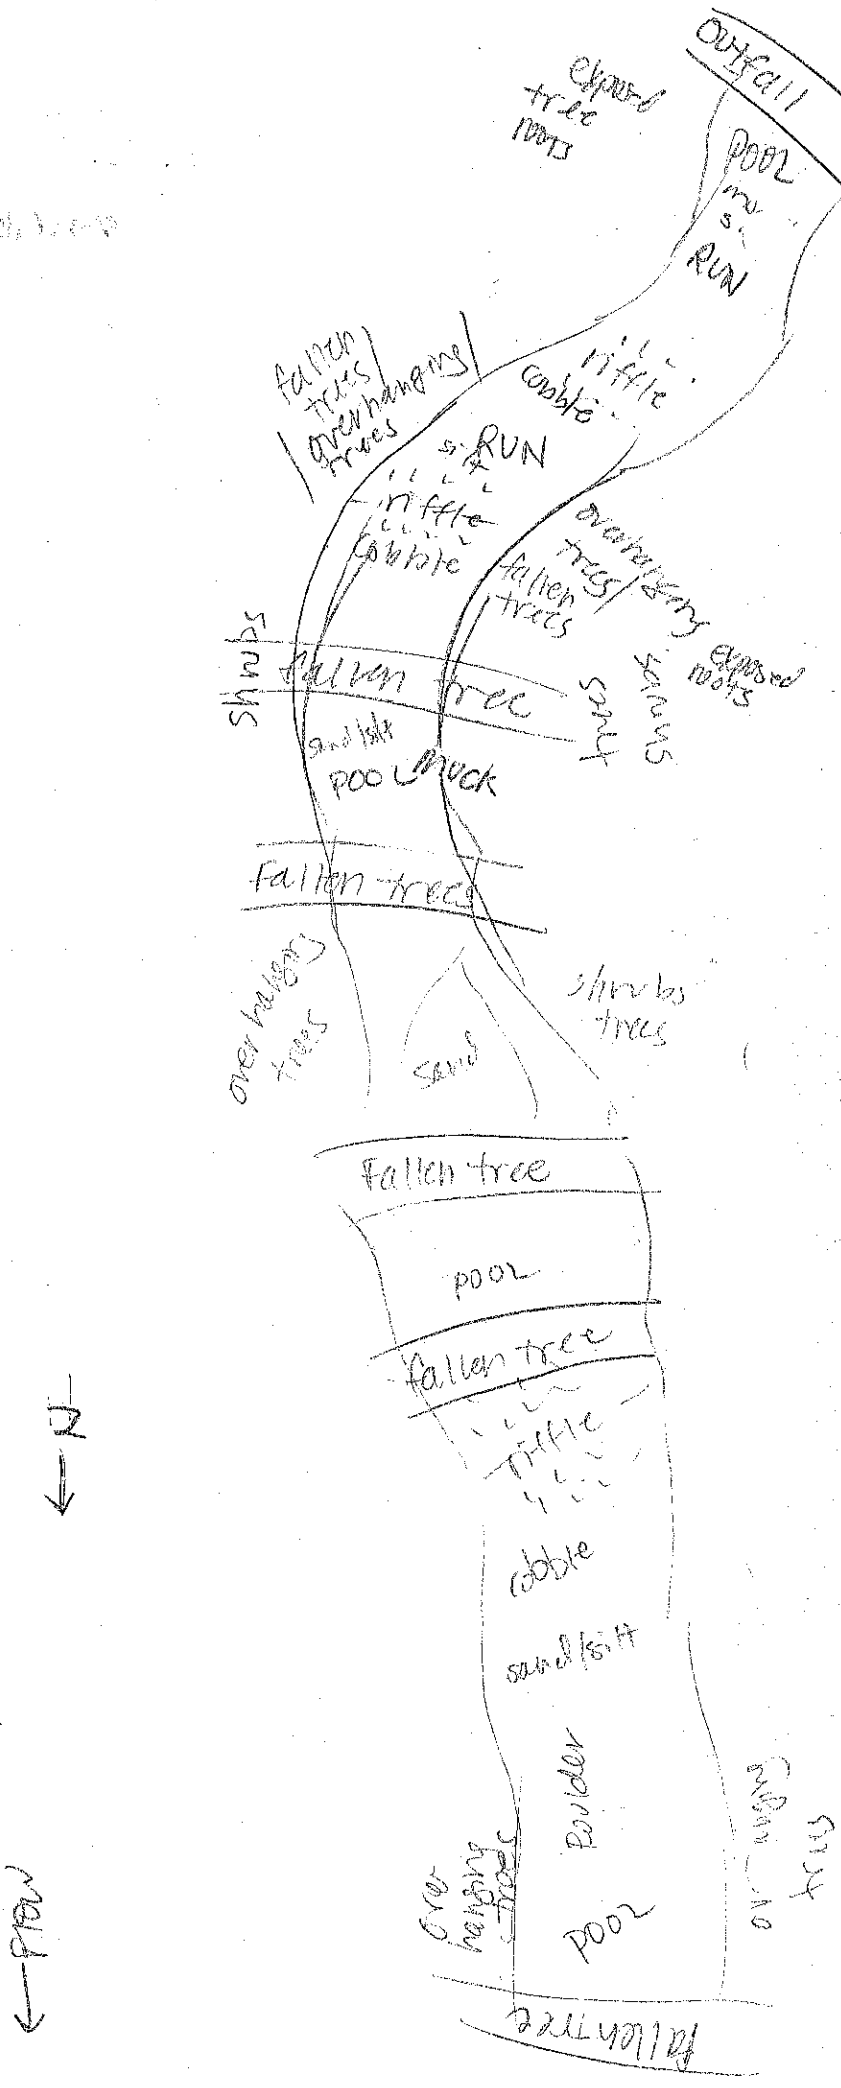 Outfall
exposed
tree
roots
POOL
RUN
riffle
cobble
fallen
trees/
overhanging
trees
RUN
riffle
cobble
overhanging
trees/
fallen
trees
exposed
roots
shrubs
shrubs
fallen tree
sand/silt
POOL muck
fallen trees
overhanging
trees
sand
shrubs
trees
Fallen tree
POOL
fallen tree
riffle
cobble
sand/silt
Boulder
over
hanging
trees
trees
POOL
fallen tree
N
Flow